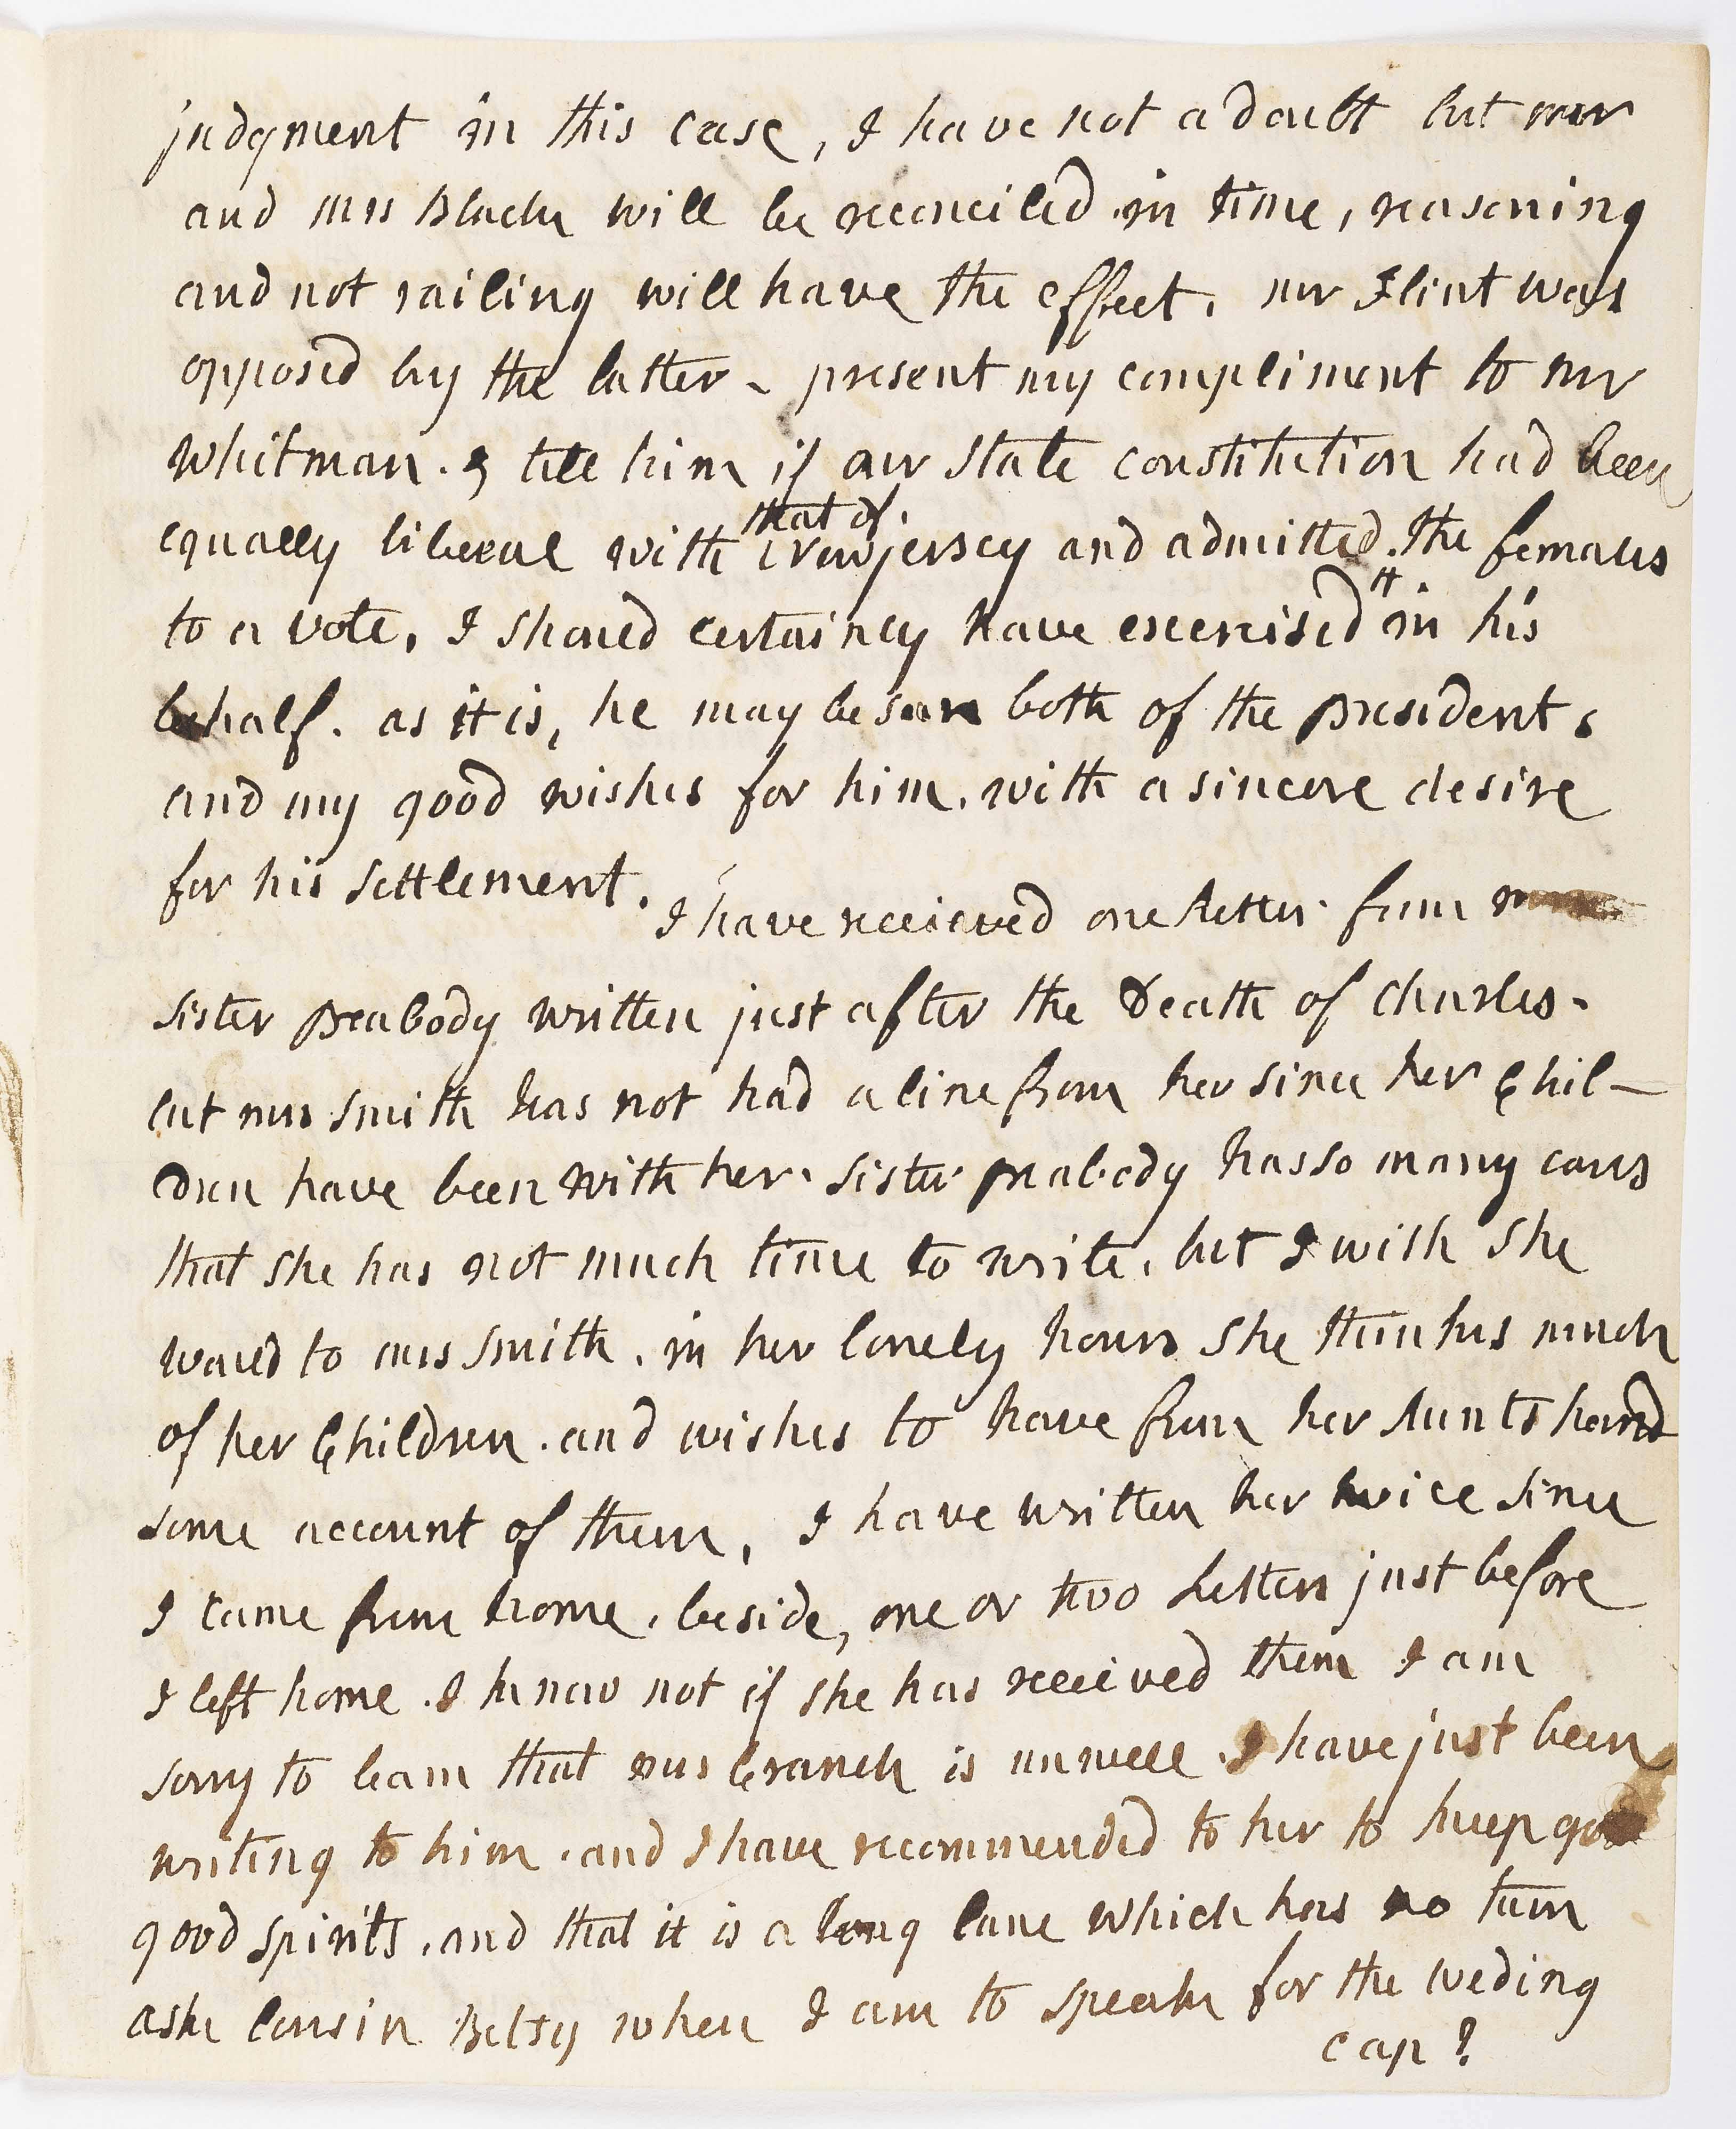 judgment in this case, I have not a doubt but mr
and mrs Blacke will be reconciled in time, reasoning
and not railing will have the effect. mr Flint was
opposed by the latter - present my compliment to mr
Whitman. & tell him if our State constitution had been
that of
equally liberal with New jersey and admitted the females
it
to a vote, I should certainly have exercised in his
behalf. as it is, he may be sure both of the President s
and my good wishes for him. with a sincere desire
for his settlement. I have received one Letter from
sister Peabody written just after the Death of Charles-
but mrs Smith has not had a line from her since her Chil-
dren have been with her. sister peabody has so many cares
that she has not much time to write. but I wish She
would to mrs Smith. in her lonely hours She thinks much
of her Children. and wishes to have from her Aunts hand
some account of them, I have written her twice since
I came from home. beside, one or two Letters just before
I left home. I know not if she has received them I am
sorry to learn that mrs Cranch is unwell. I have just been
writing to him. and I have recommended to her to keep good
good spirits. and that it is a long lane which has no turn
aske Cousin Betsy when I am to speake for the weding
cap?